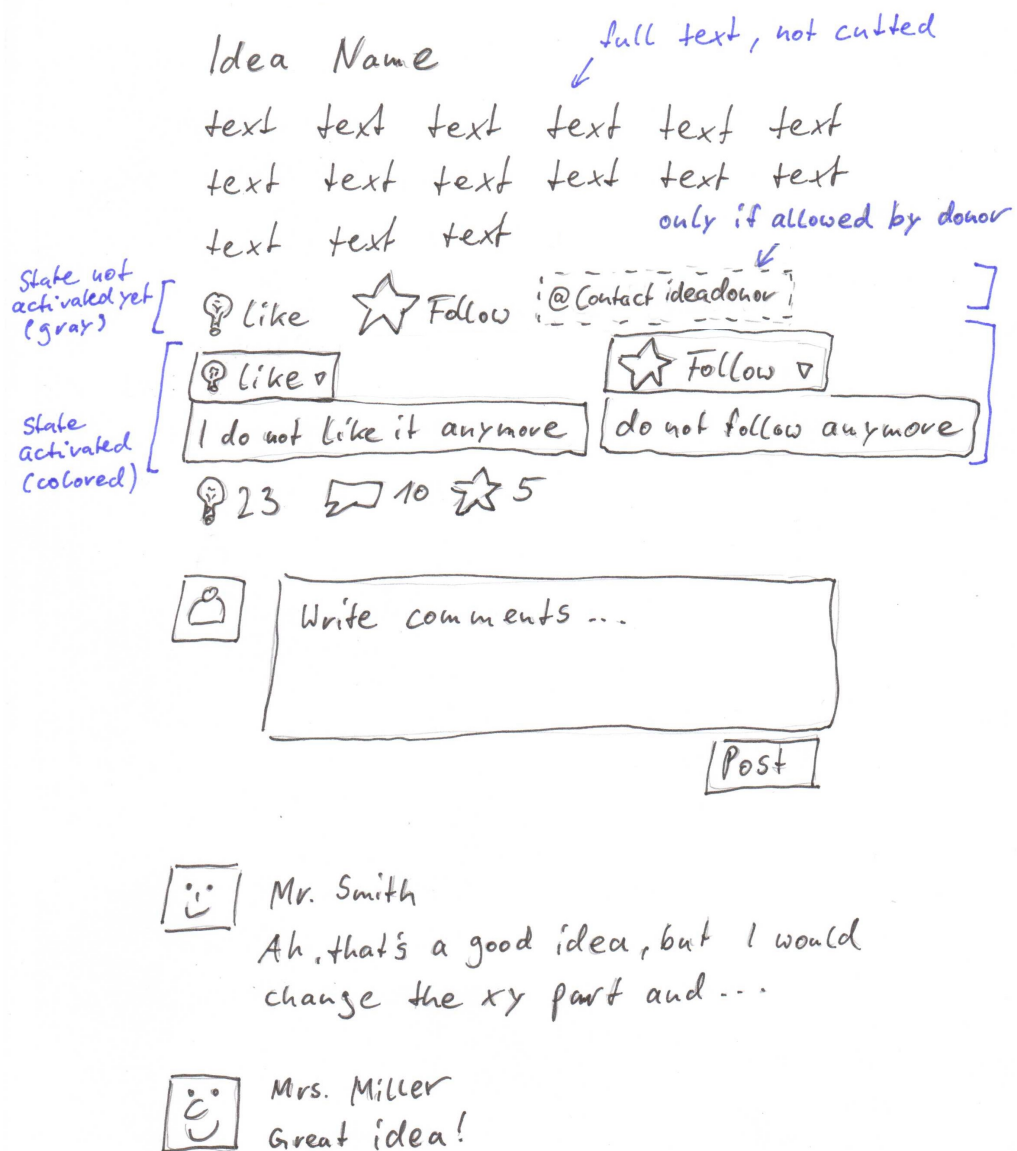 full text, not cutted
Idea Name
text text text text text text
text text text text text text
only if allowed by donor
text text text
State not
activated yet
(gray)
like Follow @Contact ideadonor
like Follow
State
activated
(colored)
I do not like it anymore do not follow anymore
23 10 5
Write comments ...
Post
Mr. Smith
Ah, that's a good idea, but I would
change the xy part and ...
Mrs. Miller
Great idea!